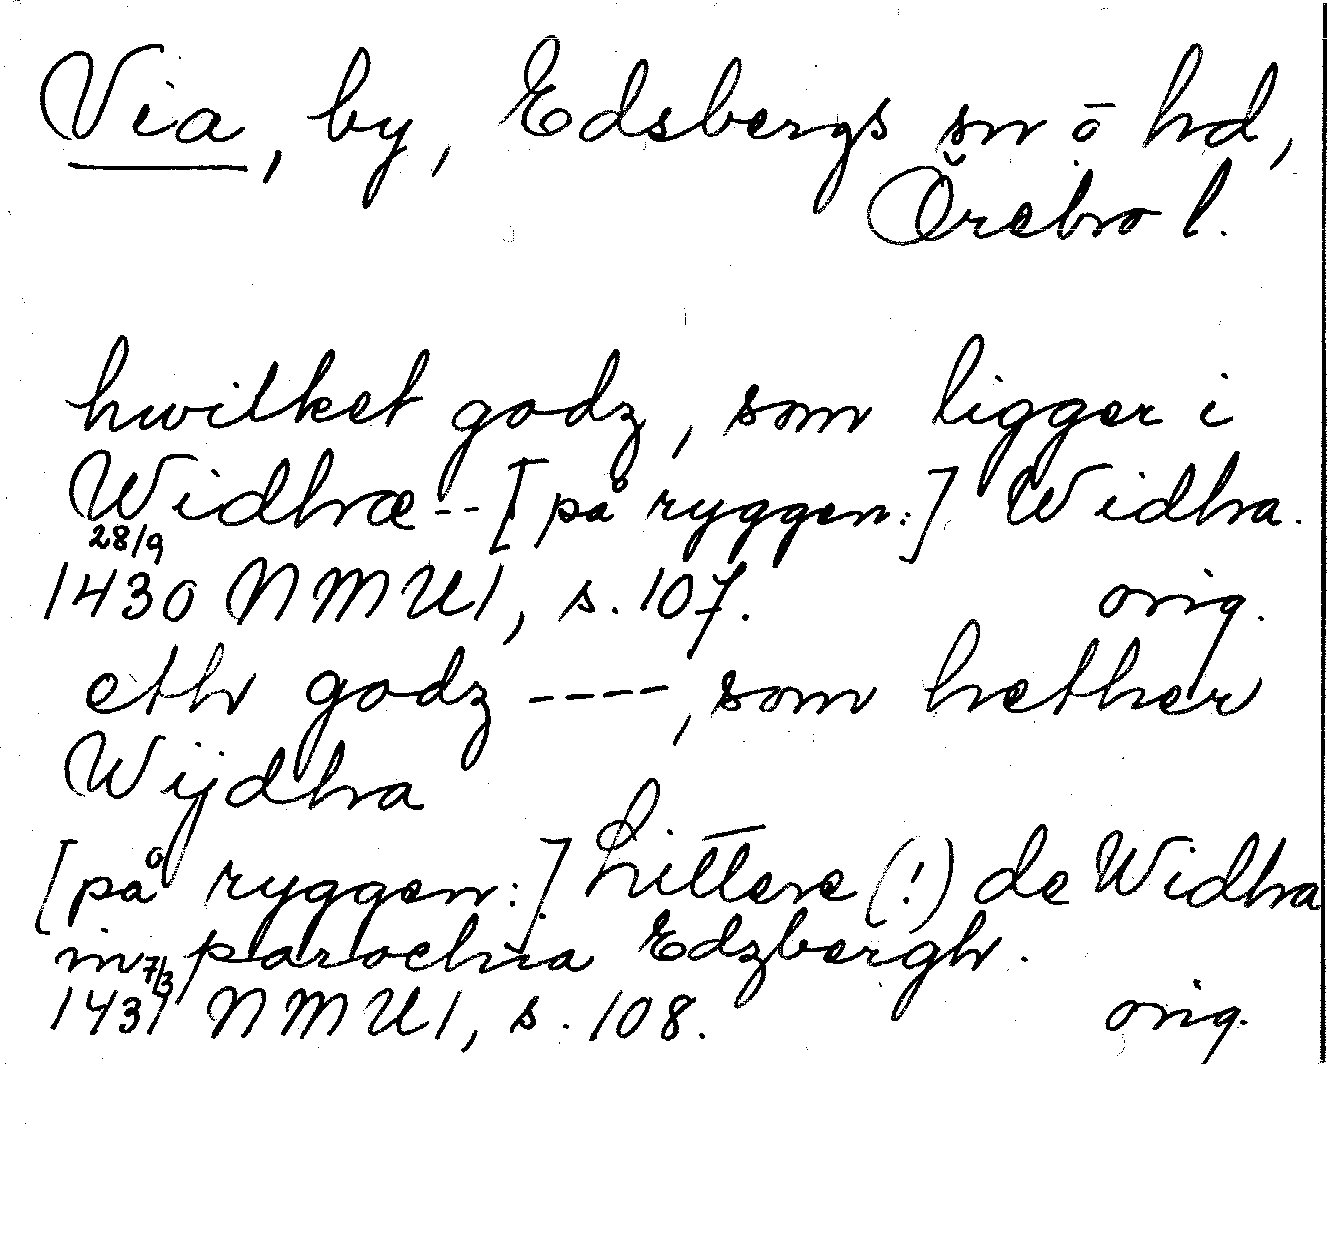 Via, by, Edsbergs sn o hd,
Örebro l.
hwilket godz, som ligger i
Widhræ -- [på ryggen:] Widhra.
28/9
1430 NMU1, s. 107. orig.
eth godz ----, som hether
Wijdhra
[på ryggen:] Littere (!) de Widhra
in parochia Edzbergh.
7/3
1431 NMU1, s. 108. orig.